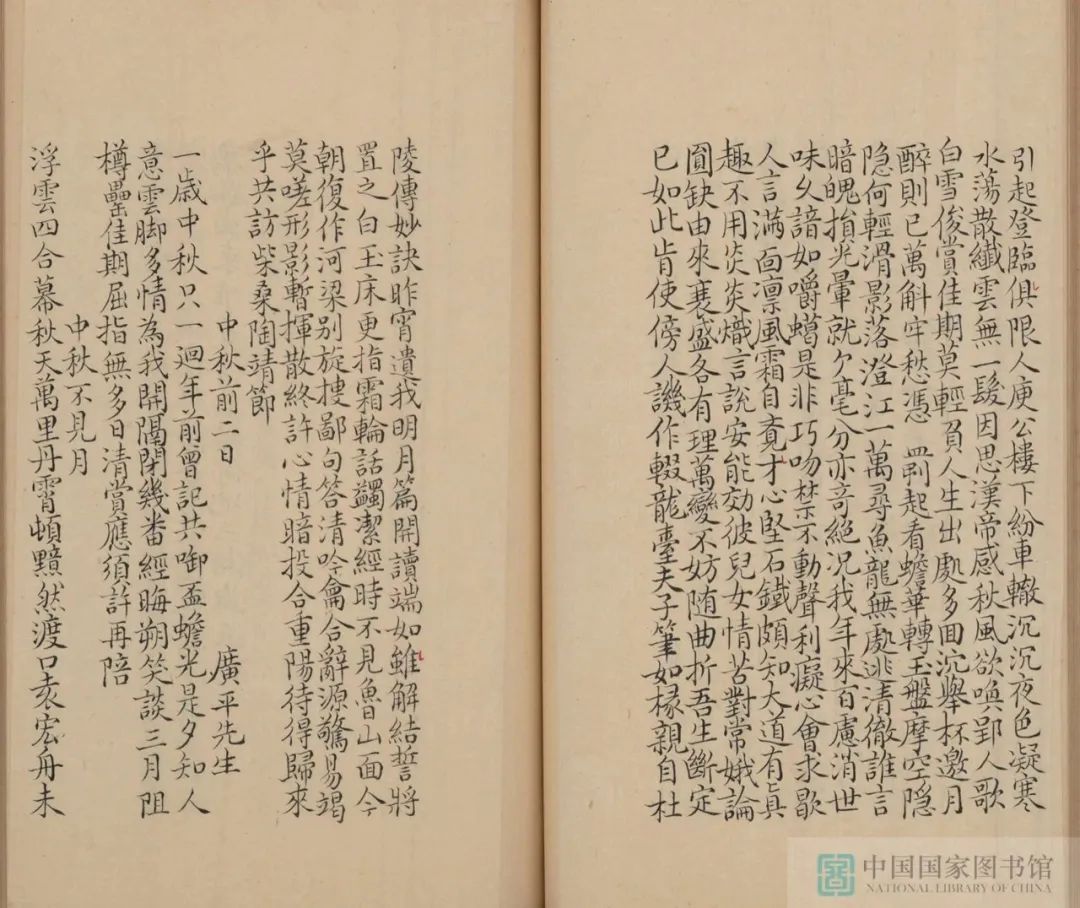 引起登臨俱限人庾公樓下紛車轍沉沉夜色凝寒
水蕩散纖雲無一髮因思漢帝感秋風欲喚郢人歌
白雪俊賞佳期莫輕負人生出處多面沉舉杯邀月
醉則已萬斛牢愁憑 剛起看蟾華轉玉盤摩空隐
隐何輕滑影落澄江一萬尋魚龍無處逃清徹誰言
暗魄損光暈就欠毫分亦竒絕況我年來百慮消世
味久諳如嚼蠟是非巧吻禁不動聲利癡心會求歇
人言滿面凛風霜自竟才心堅石鐵頗知大道有真
趣不用炎炎熾言說安能効彼兒女情苦對常娥論
圓缺由來衰盛各有理萬變不妨随曲折吾生斷定
已如此肯使傍人譏作輟龍臺夫子筆如椽親自杜
陵傳妙訣昨宵遺我明月篇開讀端如雖解結誓將
置之白玉床更指霜輪話蠲潔經時不見魯山面今
朝復作河梁别旋摟鄙句答清吟龠合辭源驚易竭
莫嗟形影暫揮散終許心情暗投合重陽待得歸來
乎共訪柴桑陶靖節
中秋前二日 廣平先生
一歲中秋只一迴年前曾記共啣盃蟾光是夕知人
意雲脚多情為我開隔閉幾畨經晦朔笑談三月阻
樽罍佳期屈指無多日清賞應須許再陪
中秋不見月
浮雲四合幕秋天萬里丹霄頓黯然渡口袁宏舟未
中国国家图书馆
NATIONAL LIBRARY OF CHINA